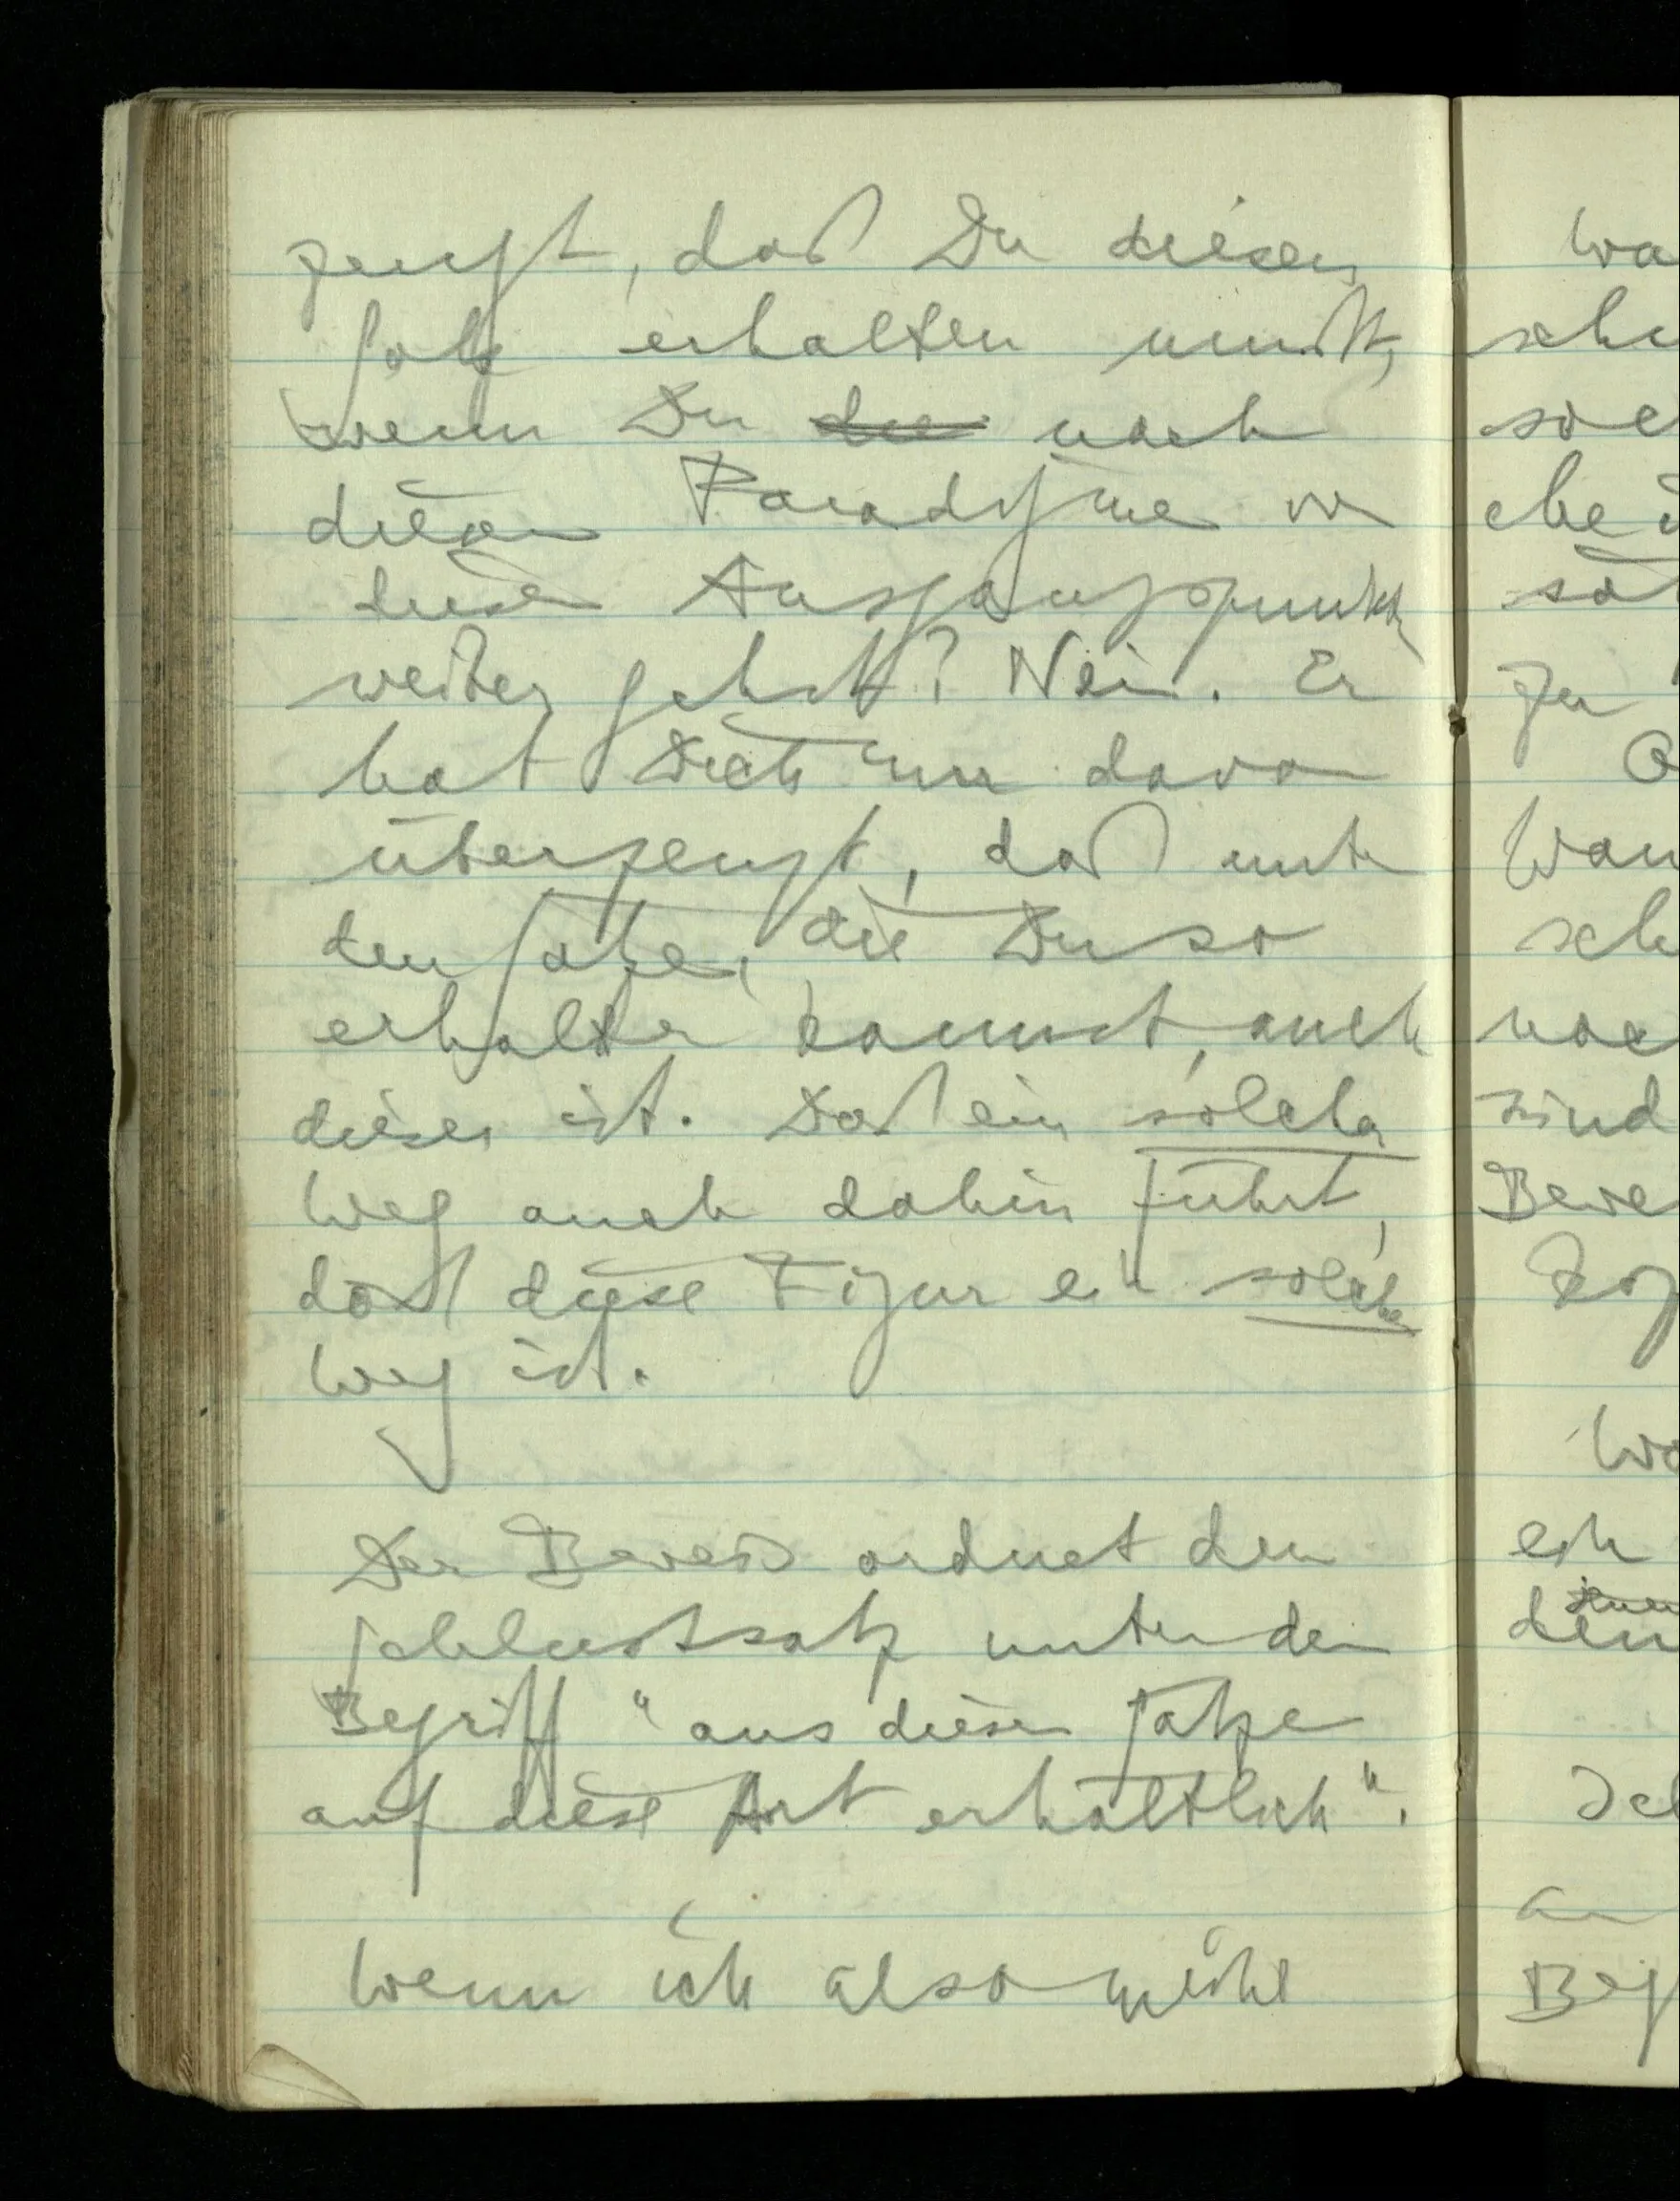 zeugt, daß Du diesen
Satz erhalten mußt,
wenn Du die nach
diesem Paradigma von
diesen Ausgangspunkten
weiter gehst? Nein. Er
hat Dich nur davon
überzeugt, daß unter
den Sätzen, die Du so
erhalten kannst, auch
dieser ist. Daß ein solcher
Weg auch dahin führt,
daß diese Figur ein solcher
Weg ist.
Der Beweis ordnet den
Schlußsatz unter den
Begriff "aus diesen Sätzen
auf diese Art erhältlich".
Wenn ich also